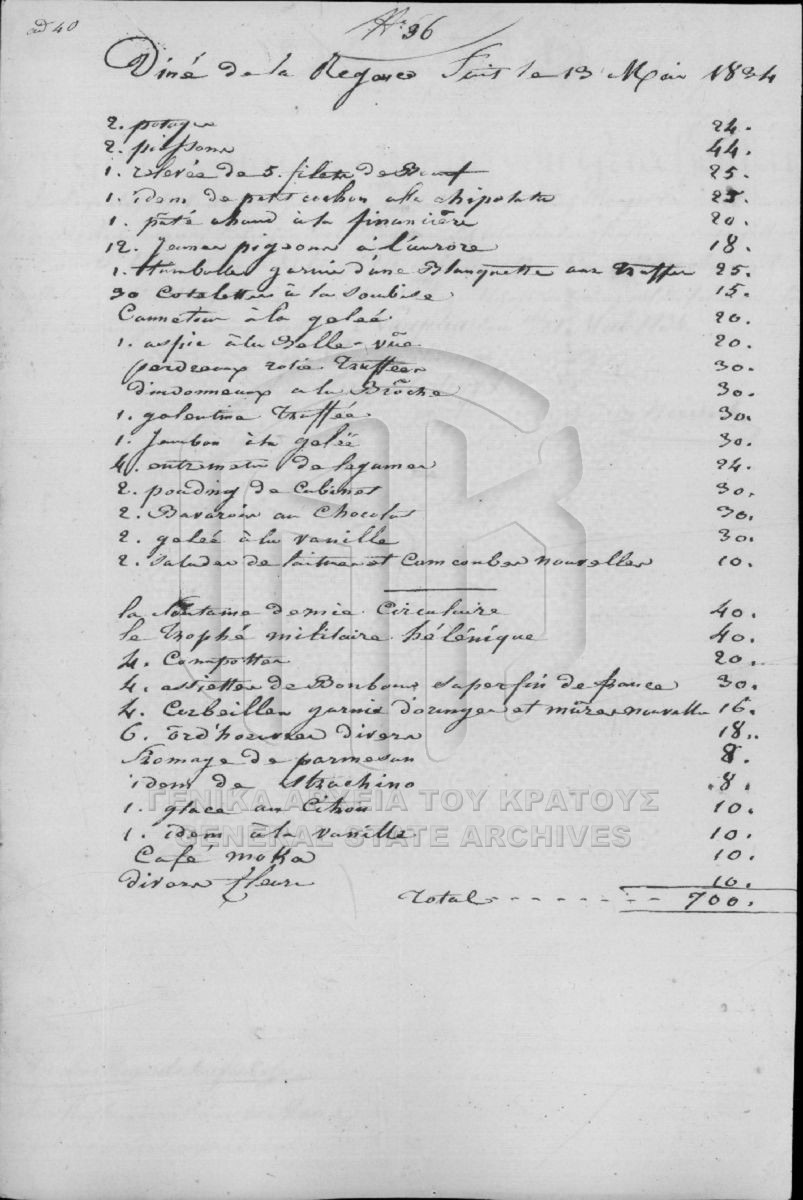 ad 40
No 96
Diné de la Regence fait le 13 Mai 1834
2. potages 24.
2. poissons 44.
1. relevée de 5. filets de Bœuf 25.
1. idem de petit cochon a la chipolata 25.
1. pâté chaud à la financière 20.
12. Jeunes pigeons à l'aurore 18.
1. timballe garnie d'une Blanquette aux truffes 25.
30 Cotelettes à la Soubise 15.
Cannetons à la geleé 20.
1. aspic à la Belle-vüe 20.
perdreaux rotis Truffées 30.
dindonneaux a la Broche 30.
1. galentine Truffée 30.
1. Jambon à la geleé 30.
4. entremets de legumes 24.
2. pouding de Cabinet 30.
2. Bavarois au Chocolat 30.
2. geleé à la vanille 30.
2. salades de laitues et Comcombes nouvelles 10.
la fontaine demie Circulaire 40.
le Trophé militaire hélénique 40.
4. Compottes 20.
4. assiettes de Bonbons superfin de france 30.
4. Corbeilles garnis d'oranges et mûres nouvelles 16.
6. ord'houvres divers 18.
fromage de parmesan 8.
idem de Strachino 8.
ΓΕΝΙΚΑ ΑΡΧΕΙΑ ΤΟΥ ΚΡΑΤΟΥΣ
1. glace au Citron 10.
GENERAL STATE ARCHIVES
1. idem à la vanille 10.
Cafe moka 10.
divers fleurs 10.
Total 700.